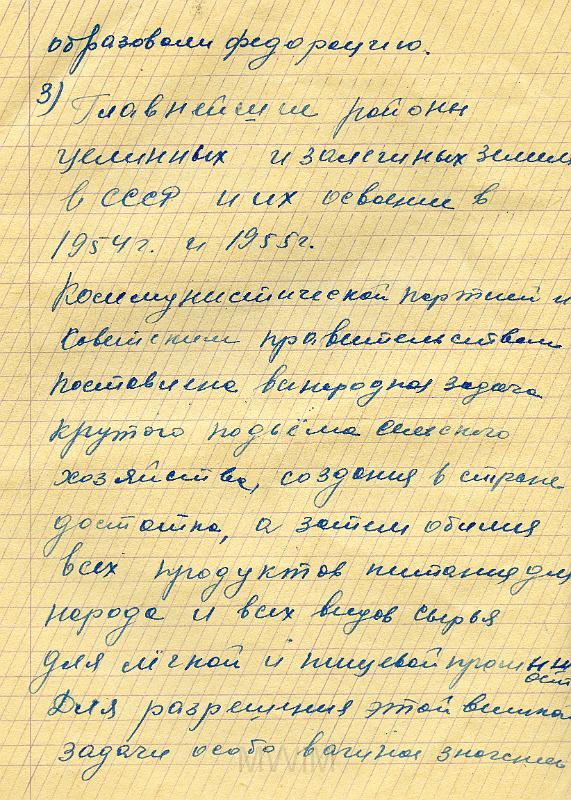 образовали федорецию.
3) Главнейшие районы
целинных и залегиных земель
в СССР и их освоение в
1954г. и 1955г.
Коммунистической партией и
Советским правительством
поставлена всенародная задача
крутого подъёма сельского
хозяйства, создания в стране
достатка, а затем обилия
всех продуктов питания для
народа и всех видов сырья
для лёгкой и пищевой промышл
ост
Для разрешения этой великой
задачи особо важное значение
MWIM